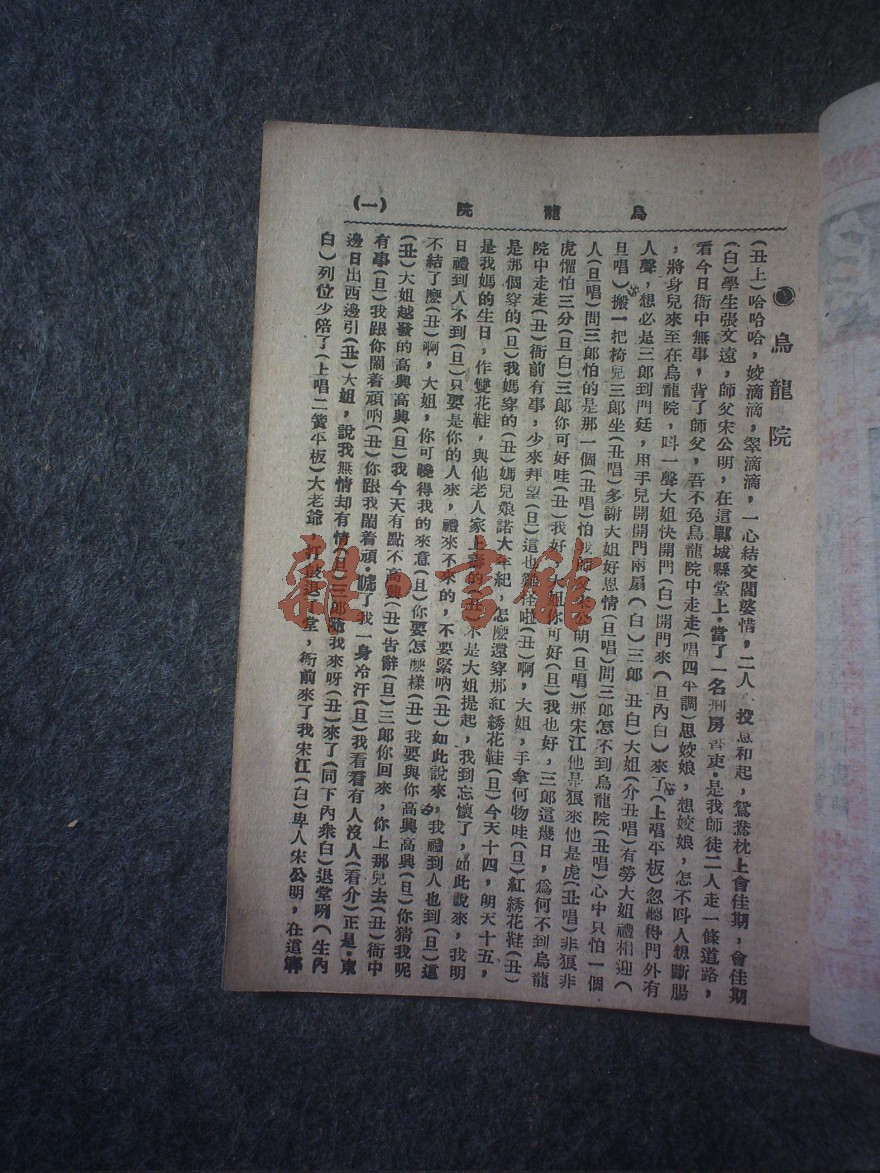 烏龍院 (一)
烏龍院
(丑上)哈哈哈，姣滴滴，翠滴滴，一心結交閻婆情，二人投意和起，鴛鴦枕上會佳期，會佳期
(白)學生張文遠，師父宋公明，在這鄆城縣堂上，當了一名刑房書吏·是我師徒二人走一條道路，
看今日衙中無事，背了師父，吾不免烏龍院中走走(唱四平調)思姣娘，想姣娘，怎不叫人想斷腸
，將身兒來至在烏龍院，叫一聲大姐快開門(白)開門來(旦內白)來了(上唱平板)忽聽得門外有
人聲，想必是三郎到門廷，用手兒開開門兩扇(白)三郎 丑白)大姐(介丑唱)有勞大姐禮相迎(
旦唱)搬一把椅兒三郎坐(丑唱)多謝大姐好恩情(旦唱)問三郎怎不到烏龍院(丑唱)心中只怕一個
人(旦唱)問三郎怕的是那一個(丑唱)怕我師父宋公明(旦唱)那宋江他是狼來他是虎(丑唱)非狼非
虎懼怕三分(旦白)三郎你可好哇(丑)我好，大姐你可好(旦)我也好，三郎這幾日，爲何不到烏龍
院中走走(丑)衙前有事，少來拜望(旦)這也難怪啦(丑)啊，大姐，手拿何物哇(旦)紅綉花鞋(丑)
是那個穿的(旦)我媽穿的(丑)媽兒娘諾大年紀，怎麽還穿那紅綉花鞋(旦)今天十四，明天十五，
是我媽的生日，作雙花鞋，與他老人家上壽的(丑)不是大姐提起，我到忘懷了，如此說來，我明
日禮到人不到(旦)只要是你的人來，禮來不來的，不要緊吶(丑)如此說來，我禮到人也到(旦)這
不結了麽(丑)啊，大姐，你可曉得我的來意(旦)你要怎麽樣(丑)我要與你高興高興(旦)你猜我呢
(丑)大姐越發的高興高興(旦)我今天有點不高興(丑)告辭(旦)三郎你回來，你上那兒去(丑)衙中
有事(旦)我跟你鬧着頑吶(丑)你跟我鬧着頑·唬了我一身冷汗(旦)我看看有人沒人(看介)正是·東
邊日出西邊引(丑)大姐，說我無情却有情(旦)三郎隨我來呀(丑)來了(同下內衆白)退堂咧(生內
白)列位少陪了(上唱二簧平板)大老爺打鼓退了堂，衙前來了我宋江(白)卑人宋公明，在這鄆
雜·書館